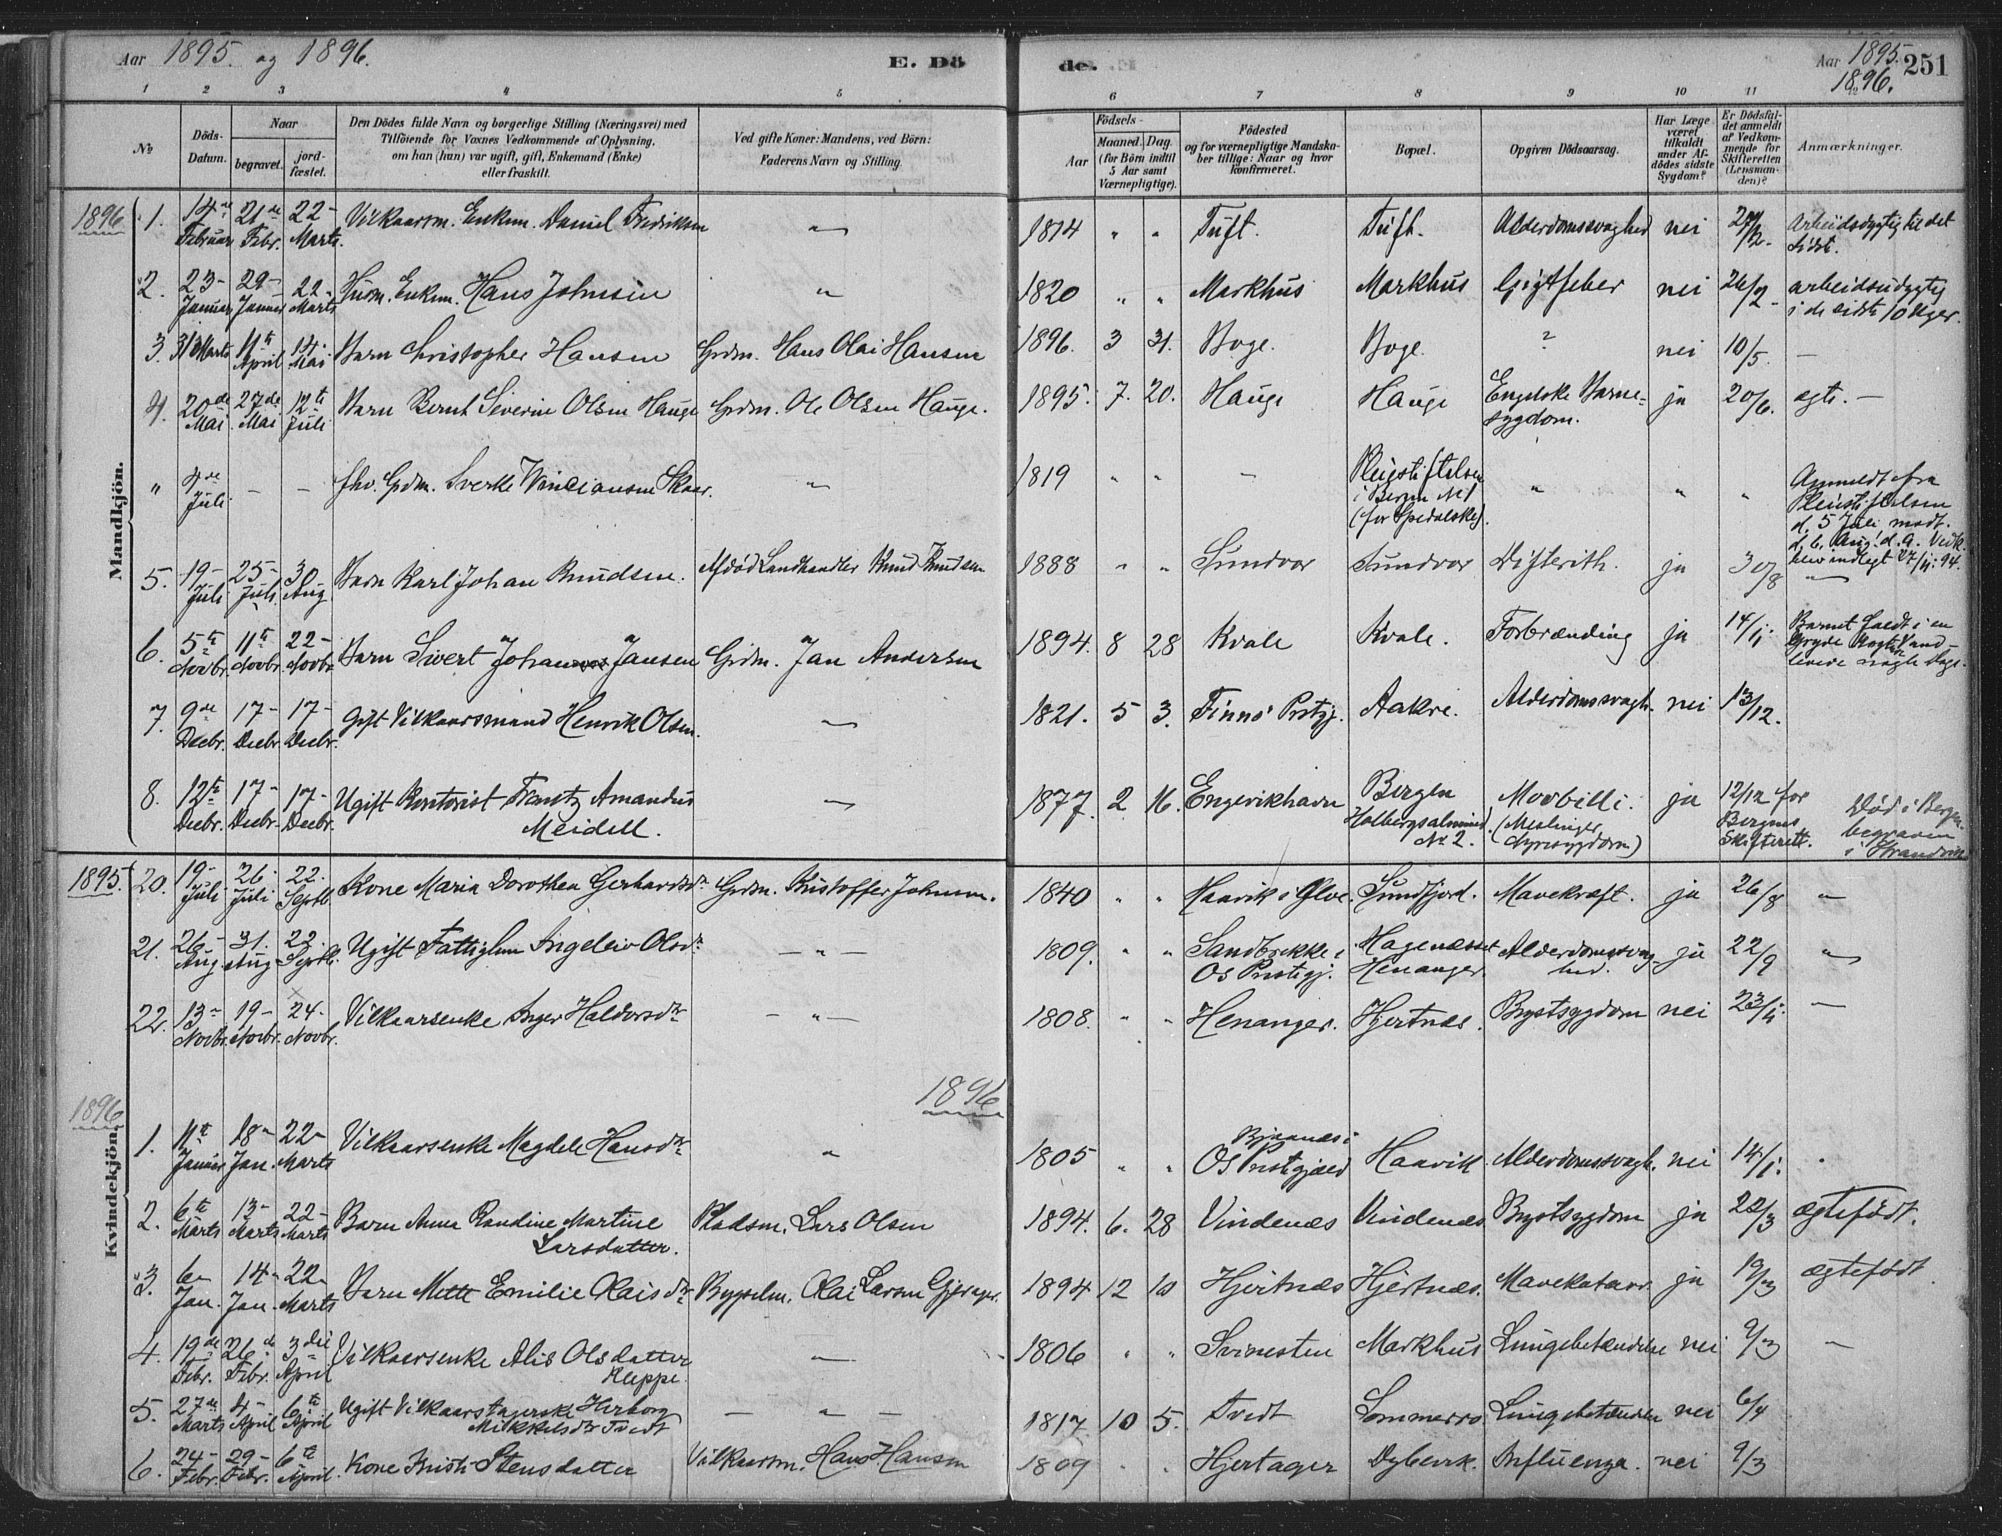 Aar 1895. og 1896.
E. Dö
de.
Aar 1895. 1896. 251
1 2 3 4 5 6 7 8 9 10 11 12
№
Döds-Datum.
Naar
begravet.
jord-fæstet.
Den Dödes fulde Navn og borgerlige Stilling (Næringsvei) med
Tilföiende for Voxnes Vedkommende af Oplysning,
om han (hun) var ugift, gift, Enkemand (Enke)
eller fraskilt.
Ved gifte Koner: Mandens, ved Börn:
Faderens Navn og Stilling.
Födsels-
Aar
Maaned. Dag.
(for Börn indtil
5 Aar samt
Værnepligtige).
Födested
og for værnepligtige Mandska-
ber tillige: Naar og hvor
konfirmeret.
Bopæl.
Opgiven Dödsaarsag.
Har Læge
været
tilkaldt
under Af-
dödes sidste
Sygdom?
Er Dödsfal-
det anmeldt
af Vedkom-
mende for
Skifteretten
(Lensman-
den)?
Anmærkninger.
Mandkjön.
1896 1. 14de Februar 21de Febr. 22- Marts. Vilkaarsm. Enkem. Daniel Fredriksen " 1814 " " Tuft. Tuft. Alderdomssvaghed nei Arbeidsdygtig til det sidste.
2. 23- Januar 29- Januar 22- Marts Husm. Enkem. Hans Johnsen " 1820 " " Markhus Markhus Gigtfeber nei 26/2- arbeidsudygtig i de sidste 10 Uger.
3. 31 Marts 11te April 14. Mai Barn Christopher Hansen Grdm. Hans Olai Hansen 1896. 3 31. Boge. Boge. ? nei 10/5. —
4. 20de Mai 27de Mai 12te Juli Barn Bernt Severin Olsen Hauge Grdm. Ole Olsen Hauge. 1895. 7. 20. Hauge Hauge Engelske Barne-sygdom. ja 20/6. ægte. —
" 4de Juli — — fhv. Grdm. Sverke Vinciansen Skaar. " 1819 " " — Pleiestiftelsen i Bergen № 1 (for Spedalske). " " " Anmeldt fra Pleiestiftelsen d. 5 Juli modt. d. 6. Aug. d. A. Vedk. blev indlagt 27/11. 94.
5. 19- Juli 25- Juli 30 Aug. Barn Karl Johan Knudsen. Afdød Landhandler Knud Knudsen 1888 " " Sundvor Sundvor Difterith. ja 30/8 "
6. 5te Novbr. 11te Novbr. 22- Novbr. Barn Sivert Johannes Jansen Grdm. Jan Andersen 1894. 8 28 Kvale Kvale. Forbrænding ja 14/11. Barnet faldt i en Gryde kogte Vand - levede nogle Dage.
7. 9de Decbr. 17- Decbr. 17- Decbr. Gift Vilkaarsmand Henrik Olsen. " 1821. 5 3. Finnes Prstgj. Aakre. Alderdomssvagh. nei 13/12.
8. 12te Decbr. 17- Decbr. 17- Decbr. Ugift Kontorist Frantz Amandus Meidell. " 1877. 2 16. Engevikhavn Bergen Holbergsalmind. № 2. Morbilli. (Meslinger, Nyresygdom) ja 12/12 for Bergens Skifterett. Død i Bergen begraven i Strandvik
1895. 20. 19- Juli 26. Juli 22. Septb. Kone Maria Dorothea Gerhardsdr Grdm. Kristoffer Johnsen. 1840 " " Haavik i Ølve. Sundfjord. Mavekræft. ja 26/8 "
21. 26- Aug. 31. Aug. 22 Septb. Ugift Fattiglem Ingeleiv Olsdr — " — 1809. " " Sandbrekke i Os Prstgj. Hagenæsset Henanger Alderdomssvag-hed. ja 22/9 "
22. 13- Novbr. 19- Novbr. 24- Novbr. Vilkaarsenke Inger Haldorsdr — " — 1808. " " Henanger. Hjertnæs. Brystsygdom nei 23/11. —
Kvindekjön.
1896
1896
1. 11te Januar 18- Jan. 22- Marts Vilkaarsenke Magdele Hansdr " 1805 " " Bjaanæs i Os Prstgjæld Haavik Alderdomssvagh. nei 14/1.
2. 6te Marts 13- Marts 22- Marts Barn Anna Randine Martine Larsdatter. Pladsm. Lars Olsen 1894. 6. 28 Vindenæs Vindenæs Brystsygdom ja 22/3 ægtefødt.
3. 6- Jan. 14- Jan. 22- Marts Barn Mette Emilie Olaisdr Bygselm. Olai Larsen Gjerager. 1894 12 10 Hjertnæs Hjertnæs. Mavekatarr. ja 19/3 ægtefødt.
4. 19de Febr. 26de Febr. 3die April Vilkaarsenke Alis Olsdatter Kleppe. — 1806 " " Svinesten Markhus Lungebetændelse nei 9/3 —
5. 27de Marts 4- April 6te April Ugift Vilkaarstagerske Herborg Mikkelsdr Tvedt — " — 1817. 10 5. Tvedt Sommerro Lungebetændn nei 6/4
6. 24- Febr. 29- Febr. 6te April. Kone Kristi Stensdatter Vilkaarsm. Hans Hansen 1809 " " Hjertager Dybevik. Influenza. nei 9/3